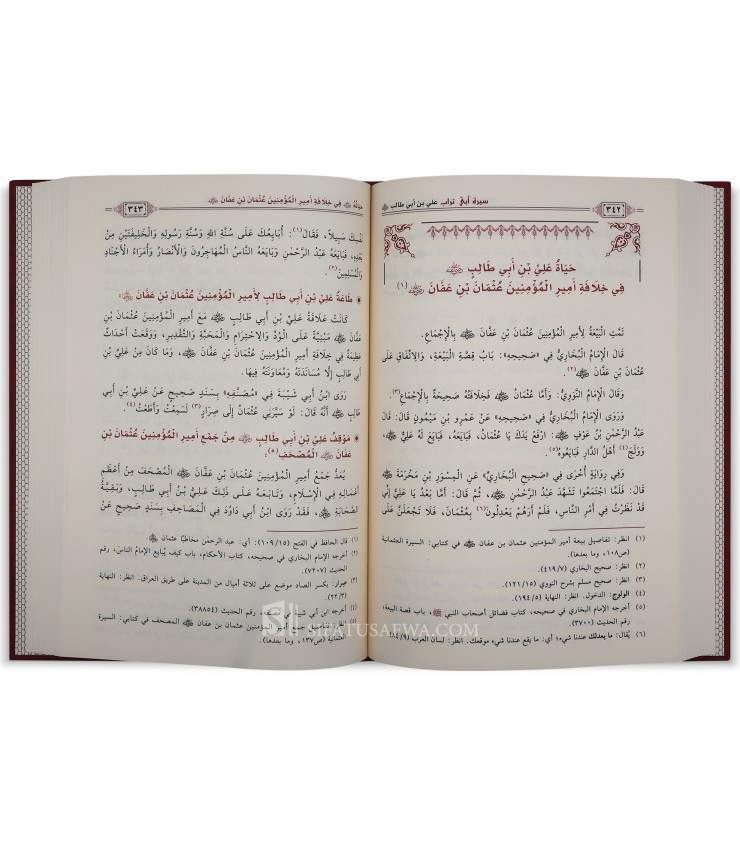 ٣٤٢
سيرة أبي تراب علي بن أبي طالب ﵁
حَيَاةُ عَلِيِّ بْنِ أَبِي طَالِبٍ ﵁
فِي خِلَافَةِ أَمِيرِ الْمُؤْمِنِينَ عُثْمَانَ بْنِ عَفَّانَ ﵁ (١)
تَمَّتِ الْبَيْعَةُ لِأَمِيرِ الْمُؤْمِنِينَ عُثْمَانَ بْنِ عَفَّانَ ﵁ بِالْإِجْمَاعِ.
قَالَ الْإِمَامُ الْبُخَارِيُّ فِي «صَحِيحِهِ»: بَابُ قِصَّةِ الْبَيْعَةِ، وَالِاتِّفَاقِ عَلَى
عُثْمَانَ بْنِ عَفَّانَ ﵁(٢).
وَقَالَ الْإِمَامُ النَّوَوِيُّ: وَأَمَّا عُثْمَانُ ﵁ فَخِلَافَتُهُ صَحِيحَةٌ بِالْإِجْمَاعِ(٣).
وَرَوَى الْإِمَامُ الْبُخَارِيُّ فِي «صَحِيحِهِ» عَنْ عَمْرِو بْنِ مَيْمُونٍ قَالَ: قَالَ
عَبْدُ الرَّحْمَنِ بْنُ عَوْفٍ ﵁: ارْفَعْ يَدَكَ يَا عُثْمَانُ، فَبَايَعَهُ، فَبَايَعَ لَهُ عَلِيٌّ ﵁،
وَوَلَجَ(٤) أَهْلُ الدَّارِ فَبَايَعُوهُ(٥).
وَفِي رِوَايَةٍ أُخْرَى فِي «صَحِيحِ الْبُخَارِيِّ» عَنِ الْمِسْوَرِ بْنِ مَخْرَمَةَ ﵁
قَالَ: فَلَمَّا اجْتَمَعُوا تَشَهَّدَ عَبْدُ الرَّحْمَنِ ﵁، ثُمَّ قَالَ: أَمَّا بَعْدُ يَا عَلِيُّ إِنِّي
قَدْ نَظَرْتُ فِي أَمْرِ النَّاسِ، فَلَمْ أَرَهُمْ يَعْدِلُونَ(٦) بِعُثْمَانَ، فَلَا تَجْعَلَنَّ عَلَى
(١) انظر: تفاصيل بيعة أمير المؤمنين عثمان بن عفان ﵁ في كتابي: السيرة العثمانية
(ص١٠٨، وما بعدها).
(٢) انظر: صحيح البخاري (٤١٩/٧).
(٣) انظر: صحيح مسلم بشرح النووي (١٢١/١٥).
(٤) الولوج: الدخول. انظر: النهاية (١٩٤/٥).
(٥) أخرجه الإمام البخاري في صحيحه، كتاب فضائل أصحاب النبي ﷺ، باب قصة البيعة،
رقم الحديث (٣٧٠٠).
(٦) يُقال: ما يعدلك عندنا شيء؛ أي: ما يقع عندنا شيء موقعك. انظر: لسان العرب
حياته ﵁ فِي خِلَافَةِ أَمِيرِ الْمُؤْمِنِينَ عُثْمَانَ بْنِ عَفَّانَ ﵁
٣٤٣
نَفْسِكَ سَبِيلًا، فَقَالَ(١): أُبَايِعُكَ عَلَى سُنَّةِ اللهِ وَسُنَّةِ رَسُولِهِ وَالْخَلِيفَتَيْنِ مِنْ
بَعْدِهِ، فَبَايَعَهُ عَبْدُ الرَّحْمَنِ وَبَايَعَهُ النَّاسُ الْمُهَاجِرُونَ وَالْأَنْصَارُ وَأُمَرَاءُ الْأَجْنَادِ
وَالْمُسْلِمِينَ(٢).
طَاعَةُ عَلِيِّ بْنِ أَبِي طَالِبٍ لِأَمِيرِ الْمُؤْمِنِينَ عُثْمَانَ بْنِ عَفَّانَ ﵁:
كَانَتْ عَلَاقَةُ عَلِيِّ بْنِ أَبِي طَالِبٍ ﵁ مَعَ أَمِيرِ الْمُؤْمِنِينَ عُثْمَانَ بْنِ
عَفَّانَ ﵁ مَبْنِيَّةً عَلَى الْوُدِّ وَالِاحْتِرَامِ وَالْمَحَبَّةِ وَالتَّقْدِيرِ، وَوَقَعَتْ أَحْدَاثٌ
عَظِيمَةٌ فِي خِلَافَةِ أَمِيرِ الْمُؤْمِنِينَ عُثْمَانَ بْنِ عَفَّانَ ﵁، وَمَا كَانَ مِنْ عَلِيِّ بْنِ
أَبِي طَالِبٍ إِلَّا مُسَانَدَتَهُ وَمُعَاوَنَتَهُ فِيهَا.
رَوَى ابْنُ أَبِي شَيْبَةَ فِي «مُصَنَّفِهِ» بِسَنَدٍ صَحِيحٍ عَنْ عَلِيِّ بْنِ أَبِي
طَالِبٍ ﵁ أَنَّهُ قَالَ: لَوْ سَيَّرَنِي عُثْمَانُ إِلَى صِرَارٍ(٣) لَسَمِعْتُ وَأَطَعْتُ(٤).
مَوْقِفُ عَلِيِّ بْنِ أَبِي طَالِبٍ ﵁ مِنْ جَمْعِ أَمِيرِ الْمُؤْمِنِينَ عُثْمَانَ بْنِ
عَفَّانَ ﵁ الْمُصْحَفَ(٥):
يُعَدُّ جَمْعُ أَمِيرِ الْمُؤْمِنِينَ عُثْمَانَ بْنِ عَفَّانَ ﵁ الْمُصْحَفَ مِنْ أَعْظَمِ
أَعْمَالِهِ فِي الْإِسْلَامِ، وَتَابَعَهُ عَلَى ذَلِكَ عَلِيُّ بْنُ أَبِي طَالِبٍ، وَبَقِيَّةُ
الصَّحَابَةِ ﵃، فَقَدْ رَوَى ابْنُ أَبِي دَاوُدَ فِي الْمَصَاحِفِ بِسَنَدٍ صَحِيحٍ عَنْ
(١) قال الحافظ في الفتح (١٠٩/١٥): أي: عبد الرحمن مخاطبًا عثمان ﵁.
(٢) أخرجه الإمام البخاري في صحيحه، كتاب الأحكام، باب كيف يُبايع الإمامُ الناسَ، رقم
الحديث (٧٢٠٧).
(٣) صِرار: بكسر الصاد موضع على ثلاثة أميال من المدينة على طريق العراق. انظر: النهاية
(٢٢/٣).
(٤) أخرجه ابن أبي شيبة في مصنفه، رقم الحديث (٣٨٨٥٤).
(٥) انظر تفاصيل جمع أمير المؤمنين عثمان بن عفان ﵁ المصحف في كتابي: السيرة
العثمانية (ص١٣٧، وما بعدها).
SIFATUSAFWA.COM